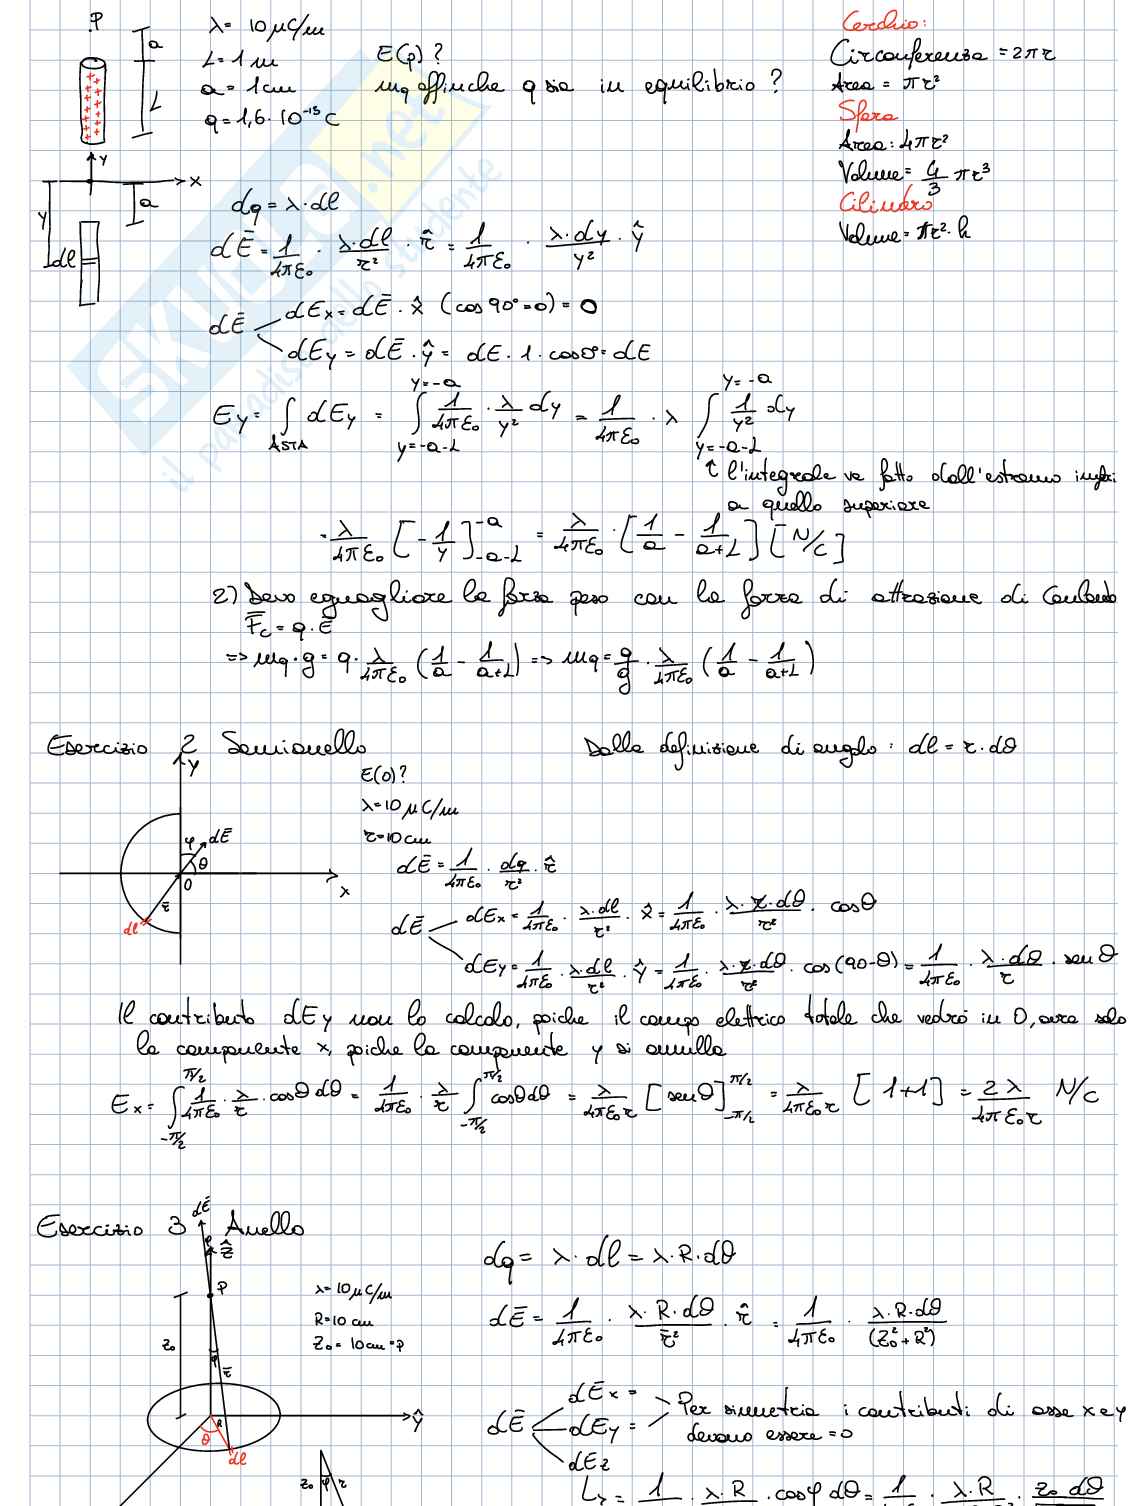 .P
a
L
λ = 10 μC/m
L = 1 m
a = 1 cm
q = 1,6 · 10⁻¹⁵ C
E(p) ?
mq affinche q sia in equilibrio ?
Cerchio:
Circonferenza = 2πr
Area = πr²
Sfera
Area: 4πr²
Volume = 4/3 πr³
Cilindro
Volume = πr² · h
Y
x
a
y
dl
SKUOLA.net
il paradiso dello studente
dq = λ · dl
dĒ = 1/4πε₀ · λ·dl/r² · r̂ = 1/4πε₀ · λ·dy/y² · ŷ
dĒ
dEx = dĒ · x̂ (cos 90° = 0) = 0
dEy = dĒ · ŷ = dE · 1 · cos 0° = dE
Ey = ∫ASTA dEy = ∫y=-a-L y=-a 1/4πε₀ · λ/y² dy = 1/4πε₀ · λ ∫y=-a-L y=-a 1/y² dy
↑ l'integrale va fatto dall'estremo
a quello superiore
= λ/4πε₀ [-1/y]-a-L -a = λ/4πε₀ · [1/a - 1/a+L] [N/C]
2) Devo eguagliare la forza peso con la forza di attrazione di Coulomb
F̄c = q · Ē
=> mq · g = q · λ/4πε₀ (1/a - 1/a+L) => mq = q/g · λ/4πε₀ (1/a - 1/a+L)
Esercizio 2 Semianello
Dalla definizione di angolo : dl = r · dθ
Y
E(0)?
λ = 10 μC/m
r = 10 cm
φ dĒ
θ
0
x
r̄
dl
dĒ = 1/4πε₀ · dq/r² · r̂
dĒ
dEx = 1/4πε₀ · λ·dl/r² · x̂ = 1/4πε₀ · λ·r·dθ/r² · cosθ
dEy = 1/4πε₀ · λ·dl/r² · ŷ = 1/4πε₀ · λ·r·dθ/r² · cos(90-θ) = 1/4πε₀ · λ·dθ/r · senθ
Il contributo dEy non lo calcolo, poiche il campo elettrico totale che vedrò in 0, avra solo
la componente x, poiche la componente y si annulla
Ex = ∫-π/2 π/2 1/4πε₀ · λ/r · cosθ dθ = 1/4πε₀ · λ/r ∫-π/2 π/2 cosθ dθ = λ/4πε₀r [senθ]-π/2 π/2 = λ/4πε₀r [1+1] = 2λ/4πε₀r N/C
Esercizio 3 Anello
dĒ
φ
ẑ
P
z₀
φ
r̄
R
θ
dl
ŷ
λ = 10 μC/m
R = 10 cm
Z₀ = 10 cm = P
dq = λ · dl = λ · R · dθ
dĒ = 1/4πε₀ · λ·R·dθ/r̄² · r̂ = 1/4πε₀ · λ·R·dθ/(Z₀²+R²)
dĒ
dĒx =
dEy =
dEz
Per simmetria i contributi di asse x e y
devono essere = 0
z₀ φ r
= 1 · λ·R · cosφ dθ = 1 · λ·R · z₀ dθ